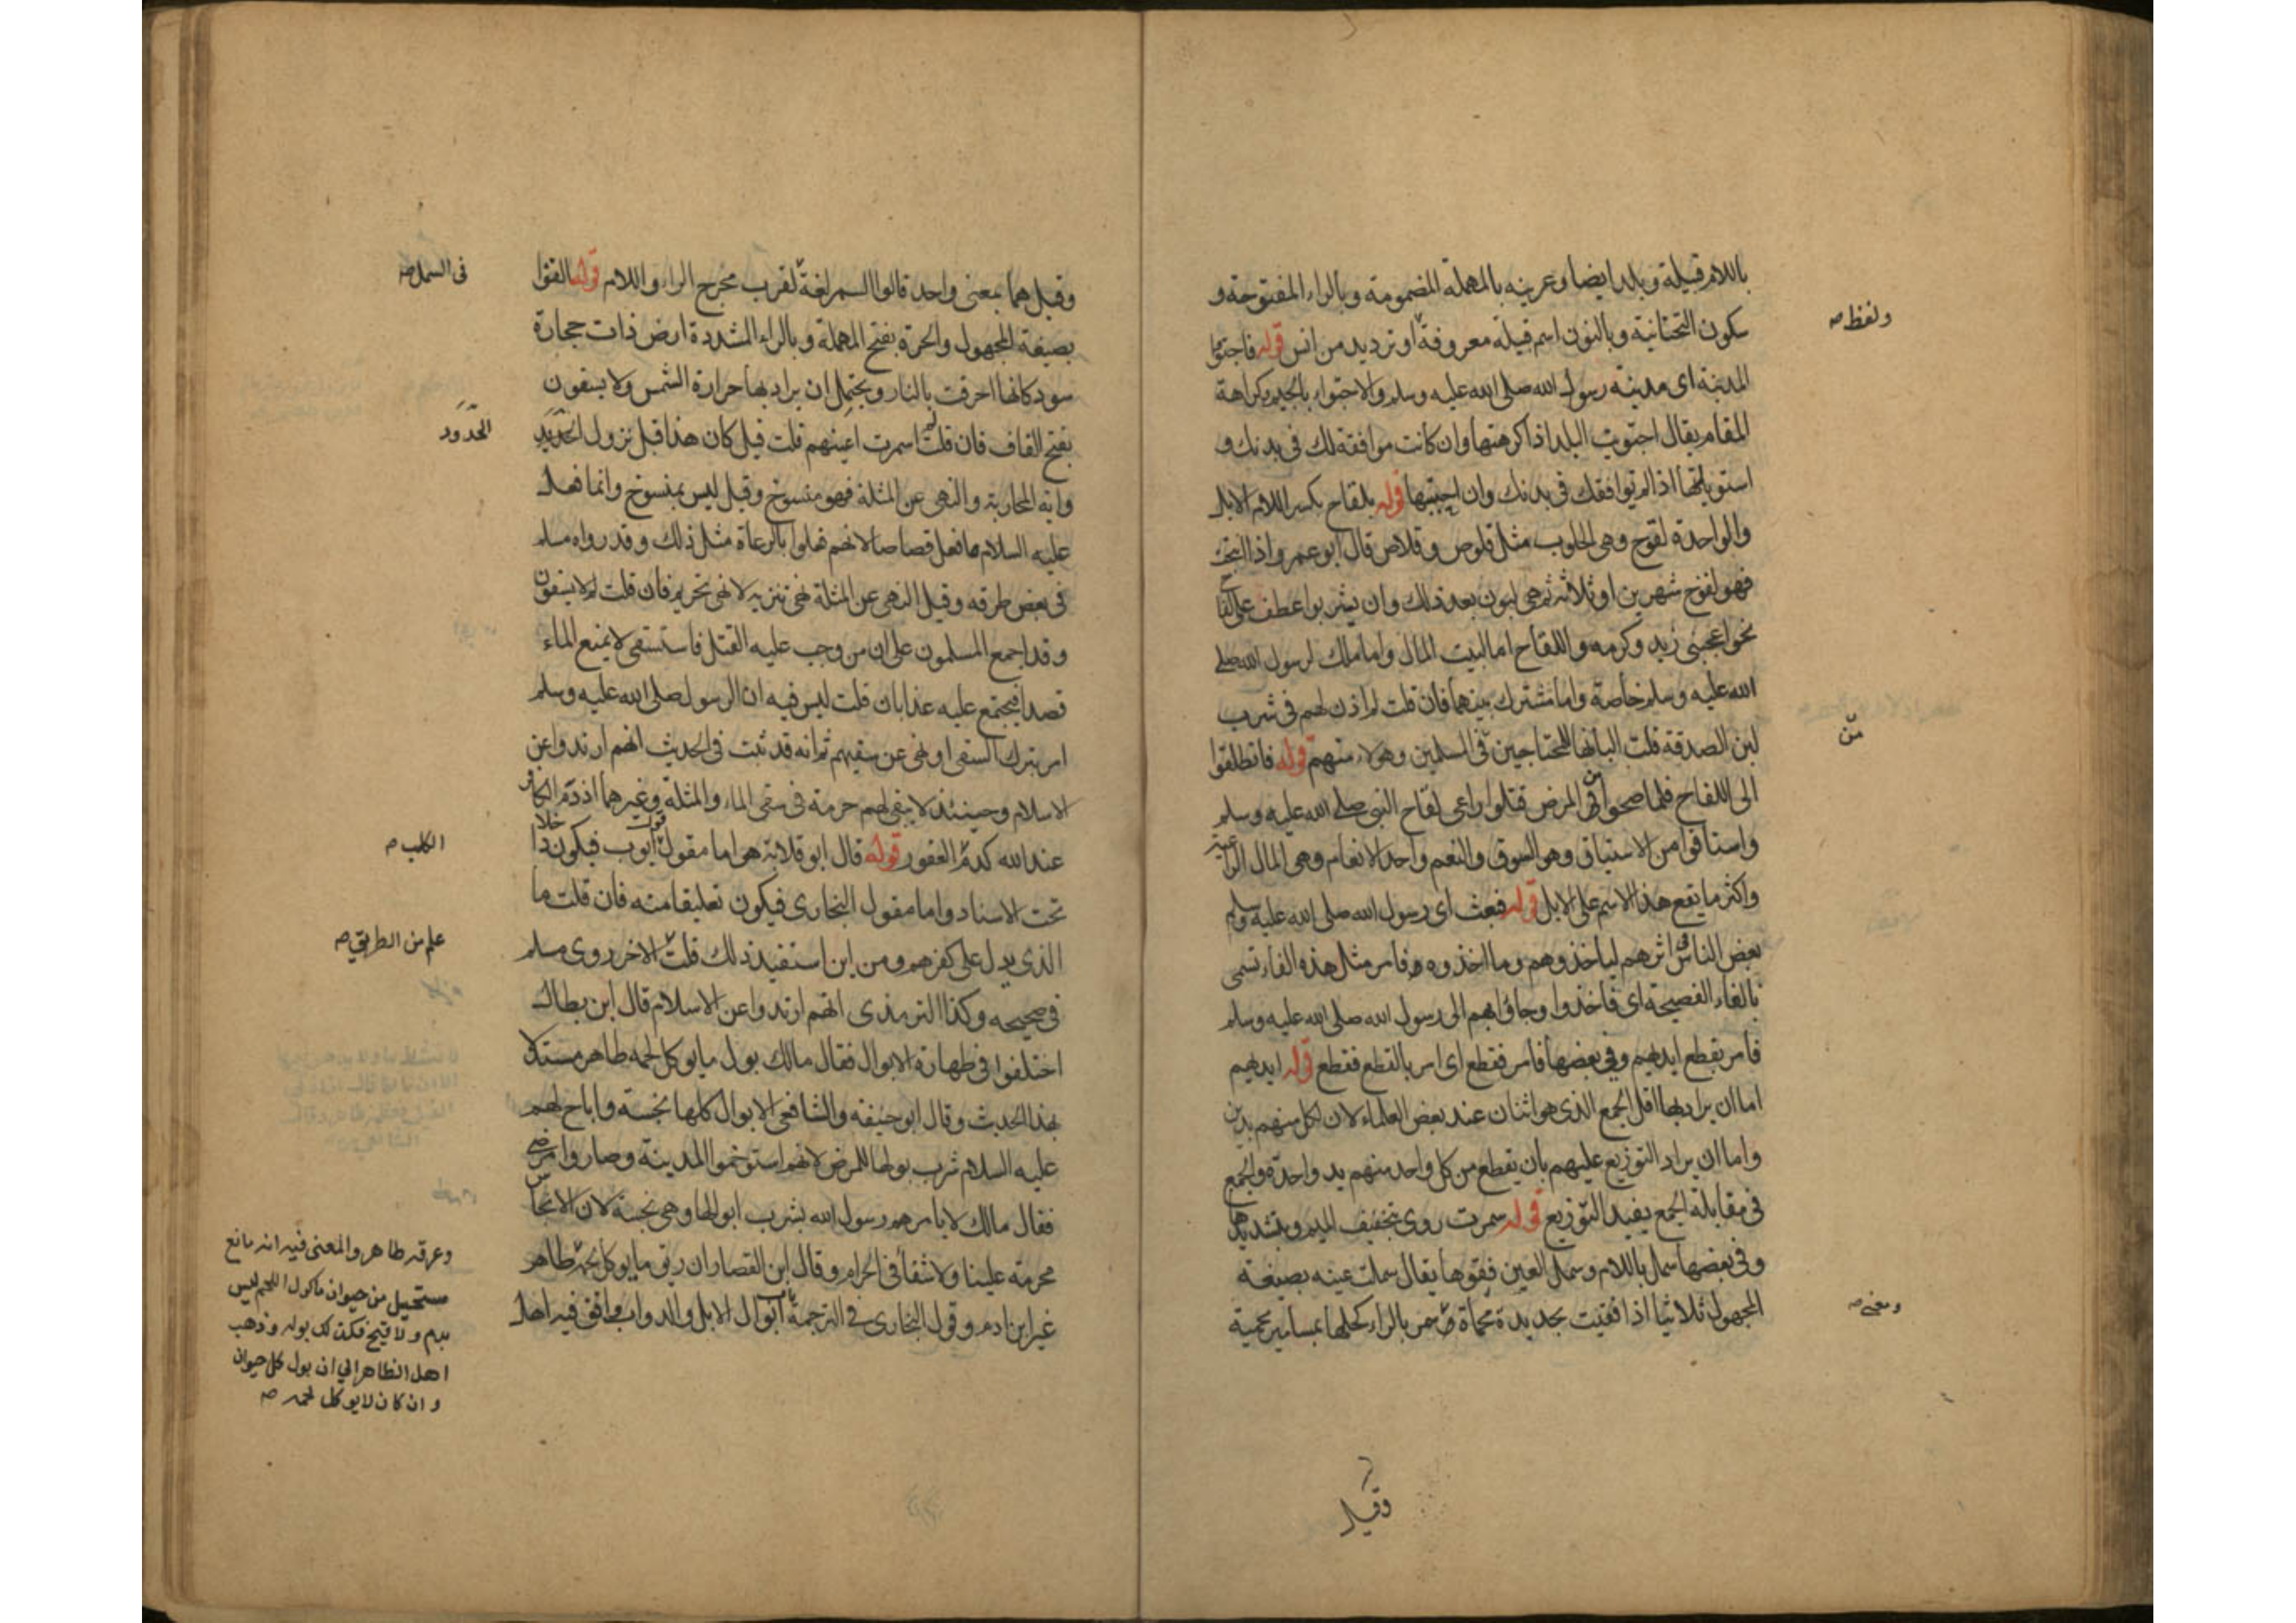 باللام قبيلة وبلد ايضا وعرينه بالمهملة المضمومة وبالراء المفتوحة و
سكون التحتانية وبالنون اسم قبيلة معروفة او ترديد من انس قوله فاجتووا
المدينة اى مدينة رسول الله صلى الله عليه وسلم والاجتواء بالجيم كراهة
المقام يقال اجتويت البلد اذا كرهتها وان كانت موافقة لك فى بدنك و
استوبلتها اذا لم توافقك فى بدنك وان احببتها قوله بلقاح بكسر اللام الابل
والواحدة لقوح وهى الحلوب مثل قلوص وقلاص قال ابو عمرو اذا انتجت
فهو لقوح شهرين او ثلاثة ثم هى لبون بعد ذلك وان يشربوا عطف على لقاح
نحو اعجبنى زيد وكرمه واللقاح اما لبيت المال واما ملك لرسول الله صلى
الله عليه وسلم خاصة واما مشترك بينهما فان قلت لم اذن لهم فى شرب
لبن الصدقة قلت البانها للمحتاجين فى المسلمين وهولاء منهم قوله فانطلقوا
الى اللقاح فلما صحوا من المرض قتلوا راعى لقاح النبى صلى الله عليه وسلم
واستاقوا من الاستياق وهو السوق والنعم واحد الانعام وهى المال الراعية
واكثر ما يقع هذا الاسم على الابل قوله فبعث اى رسول الله صلى الله عليه وسلم
بعض الناس فى اثرهم لياخذوهم وما اخذوه وفامر مثل هذه الفاء تسمى
بالفاء الفصيحة اى فاخذوا وجاؤا بهم الى رسول الله صلى الله عليه وسلم
فامر بقطع ايديهم وفى بعضها فامر فقطع اى امر بالقطع فقطع قوله ايديهم
اما ان يراد بها اقل الجمع الذى هو اثنان عند بعض العلماء لان لكل منهم يدين
واما ان يراد التوزيع عليهم بان يقطع من كل واحد منهم يد واحدة والجمع
فى مقابلة الجمع يفيد التوزيع قوله سمرت روى بتخفيف الميم وبتشديدها
وفى بعضها سمل باللام وسمل العين فقوها يقال سملت عينه بصيغة
المجهول ثلاثيا اذا فقيت بحديدة محماة سمر بالراء كحلها بمسامير محمية
ولفظ صه
من
ومعنى صه
وقيل
وقيل هما بمعنى واحد قالوا السمر لغة لقرب مخرج الراء واللام قوله القوا
بصيغة المجهول والحرة بفتح المهملة وبالراء المشددة ارض ذات حجارة
سود كانها احرقت بالنار ويحتمل ان يراد بها حرارة الشمس ولا يسقون
بفتح القاف فان قلت لم سمرت اعينهم قلت قيل كان هذا قبل نزول
واية المحاربة والنهى عن المثلة فهو منسوخ وقيل ليس بمنسوخ وانما فعل
عليه السلام ما فعل قصاصا لانهم فعلوا بالرعاة مثل ذلك وقد رواه مسلم
فى بعض طرقه وقيل النهى عن المثلة نهى تنزيه لا نهى تحريم فان قلت لم لا يسقون
وقد اجمع المسلمون على ان من وجب عليه القتل فاستسقى لا يمنع الماء
قصدا فيجتمع عليه عذابان قلت ليس فيه ان الرسول صلى الله عليه وسلم
امر بترك السقى او نهى عن سقيهم ثم انه قد ثبت فى الحديث انهم ارتدوا عن
الاسلام وحينئذ لا يبقى لهم حرمة فى سقى الماء والمثلة وغيرهما اذ دم الكافر
عند الله كدم العقور قوله قال ابو قلابة هو اما مقول ايوب فيكون داخلا
تحت الاسناد واما مقول البخارى فيكون تعليقا منه فان قلت ما
الذى يدل على كفرهم ومن اين استفيد ذلك قلت الاخر روى مسلم
فى صحيحه وكذا الترمذى انهم ارتدوا عن الاسلام قال ابن بطال
اختلفوا فى طهارة الابوال فقال مالك بول ما يوكل لحمه طاهر مستدلا
بهذا الحديث وقال ابو حنيفة والشافعى الابوال كلها نجسة واباح لهم
عليه السلام شرب بولها للمرض لانهم استوخموا المدينة وصاروا مرضى
فقال مالك لا يامرهم رسول الله بشرب ابوالها وهى نجسة لان الانجاس
محرمة علينا ولا شفاء فى الحرام وقال ابن القصار ان ريق ما يوكل لحمه طاهر
غير ابن ادم وقول البخارى فى الترجمة باب ابوال الابل والدواب وافق فيه اهل
فى السمل صه
الحدود
الكلب صه
علم من الطريق صه
وعرقه طاهر والمعنى فيه انه مائع
مستحيل من حيوان ماكول اللحم ليس
بدم ولا قيح فكذلك بوله وذهب
اهل الظاهر الى ان بول كل حيوان
وان كان لا يوكل لحمه صه